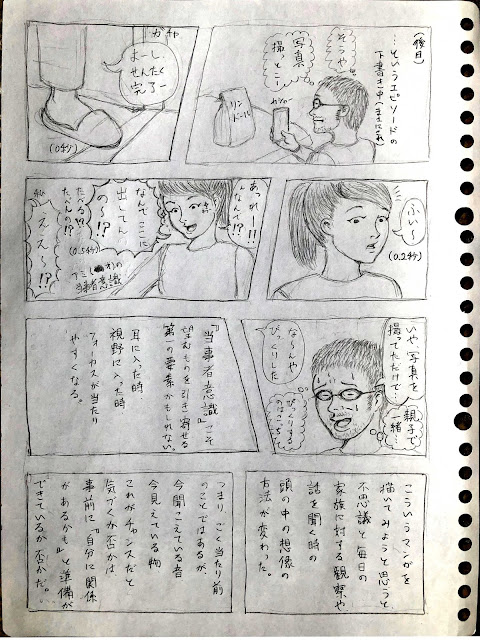 (後日)
…というエピソードの
下書き中(まさにこれ)
そうや
写真
撮っとこー
リン
ドール
ガチャ
よーし、
せんたく
完了ー
(0秒)
ふぃ〜
(0.2秒)
あっれー!!
なんで!?
なんでここに
出してん
の〜!?
(0.5秒)
たべる!?
たべんの!?
ええ〜!?
当事者意識
いや、写真を
撮ってただけで…
親子で
一緒…
な〜んや
びっくりした
びっくりする
のはこっち
『当事者意識』こそ
望むものを引き寄せる
第一の要素かもしれない。
耳に入った時
視野に入った時
フォーカスが当たり
やすくなる。
こういうマンガを
描いてみようと思うと、
不思議と毎日の
家族に対する観察や
話を聞く時の
頭の中の想像の
方法が変わった。
つまり、ごく当たり前
のことではあるが、
今聞こえている音
今見えている物
これがチャンスだと
気づくか否かは
事前に『自分に関係
があるかも』と準備が
できているか否かだ。